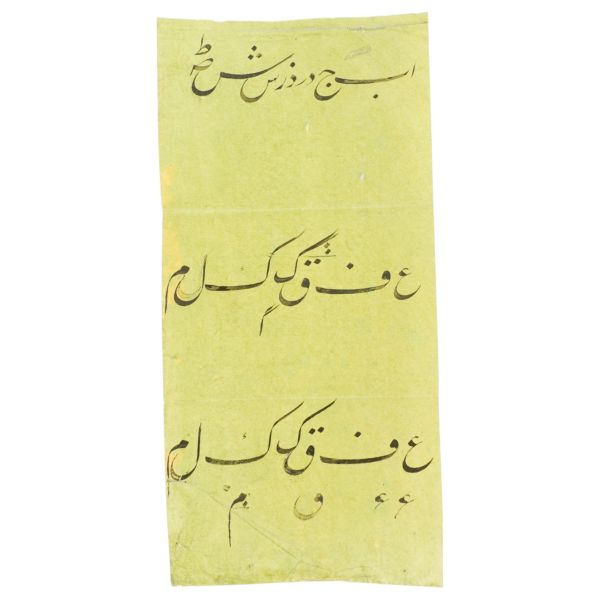 ا ب ج د ر ذ ز س ش ص ط
ع ف ق ک ک ل م
ع ف ق ک ک ل م
ء ء و م